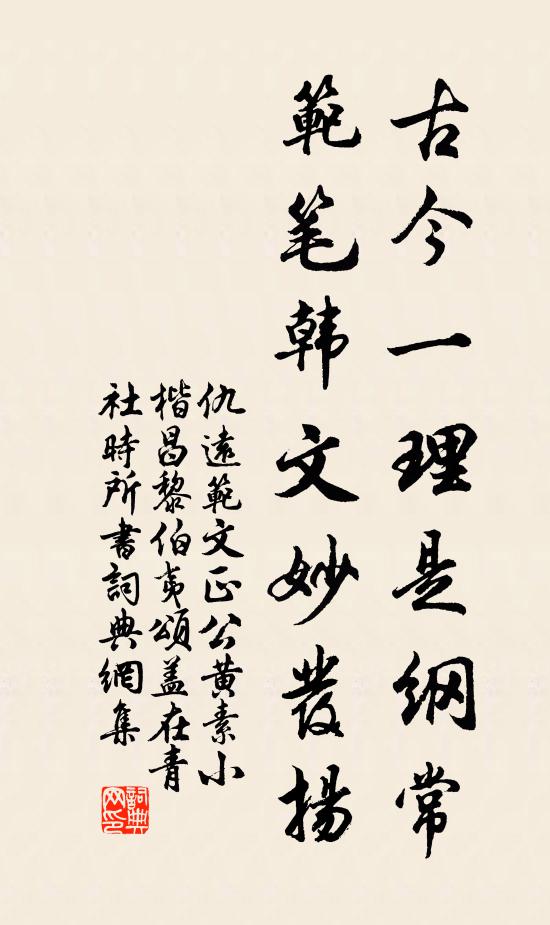 古今一理是纲常
範笔韩文妙發揚
仇遠範文正公黄素小
楷昌黎伯夷頌盖在青
社時所書詞典網集
詞典网印